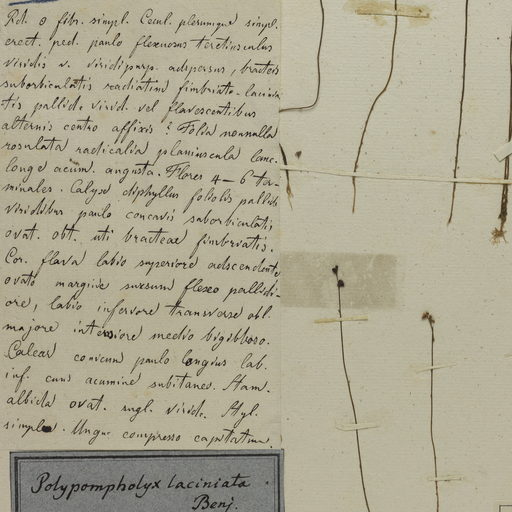 Rd. o fibr. simpl. Caul. plerumque simpl.
erect. ped. paulo flexuosus teretiusculus
viridis v. viridipurp. adspersus, bracteis
suborbiculatis radiatim fimbriato-lacinia
tis pallide virid. vel flavescentibus
alternis centro affixis? Folia nonnulla
rosulata radicalia planiuscula lanc.
longe acum. angusta. Flores 4-6 ter-
minales. Calyx diphyllus foliolis pallide
viridibus paulo concavis suborbiculatis
ovat. obt. uti bracteae fimbriatis.
Cor. flava labio superiore adscendente
ovato margine sursum flexo pallidi-
ore, labio inferiore transverse obl.
majore interiore medio bigibboso.
Calcar conicum paulo longius lab.
inf. cum acumine subitaneo. Stam.
albida ovat. virid. Styl.
simple. compresso capitatum.
Polypompholyx laciniata
Benj.